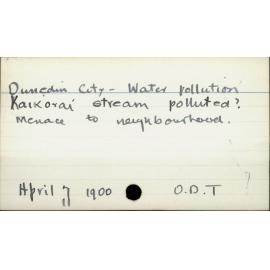 Dunedin City - Water pollution
Kaikorai stream polluted?
Menace to neighbourhood.
April 7 1900 O.D.T